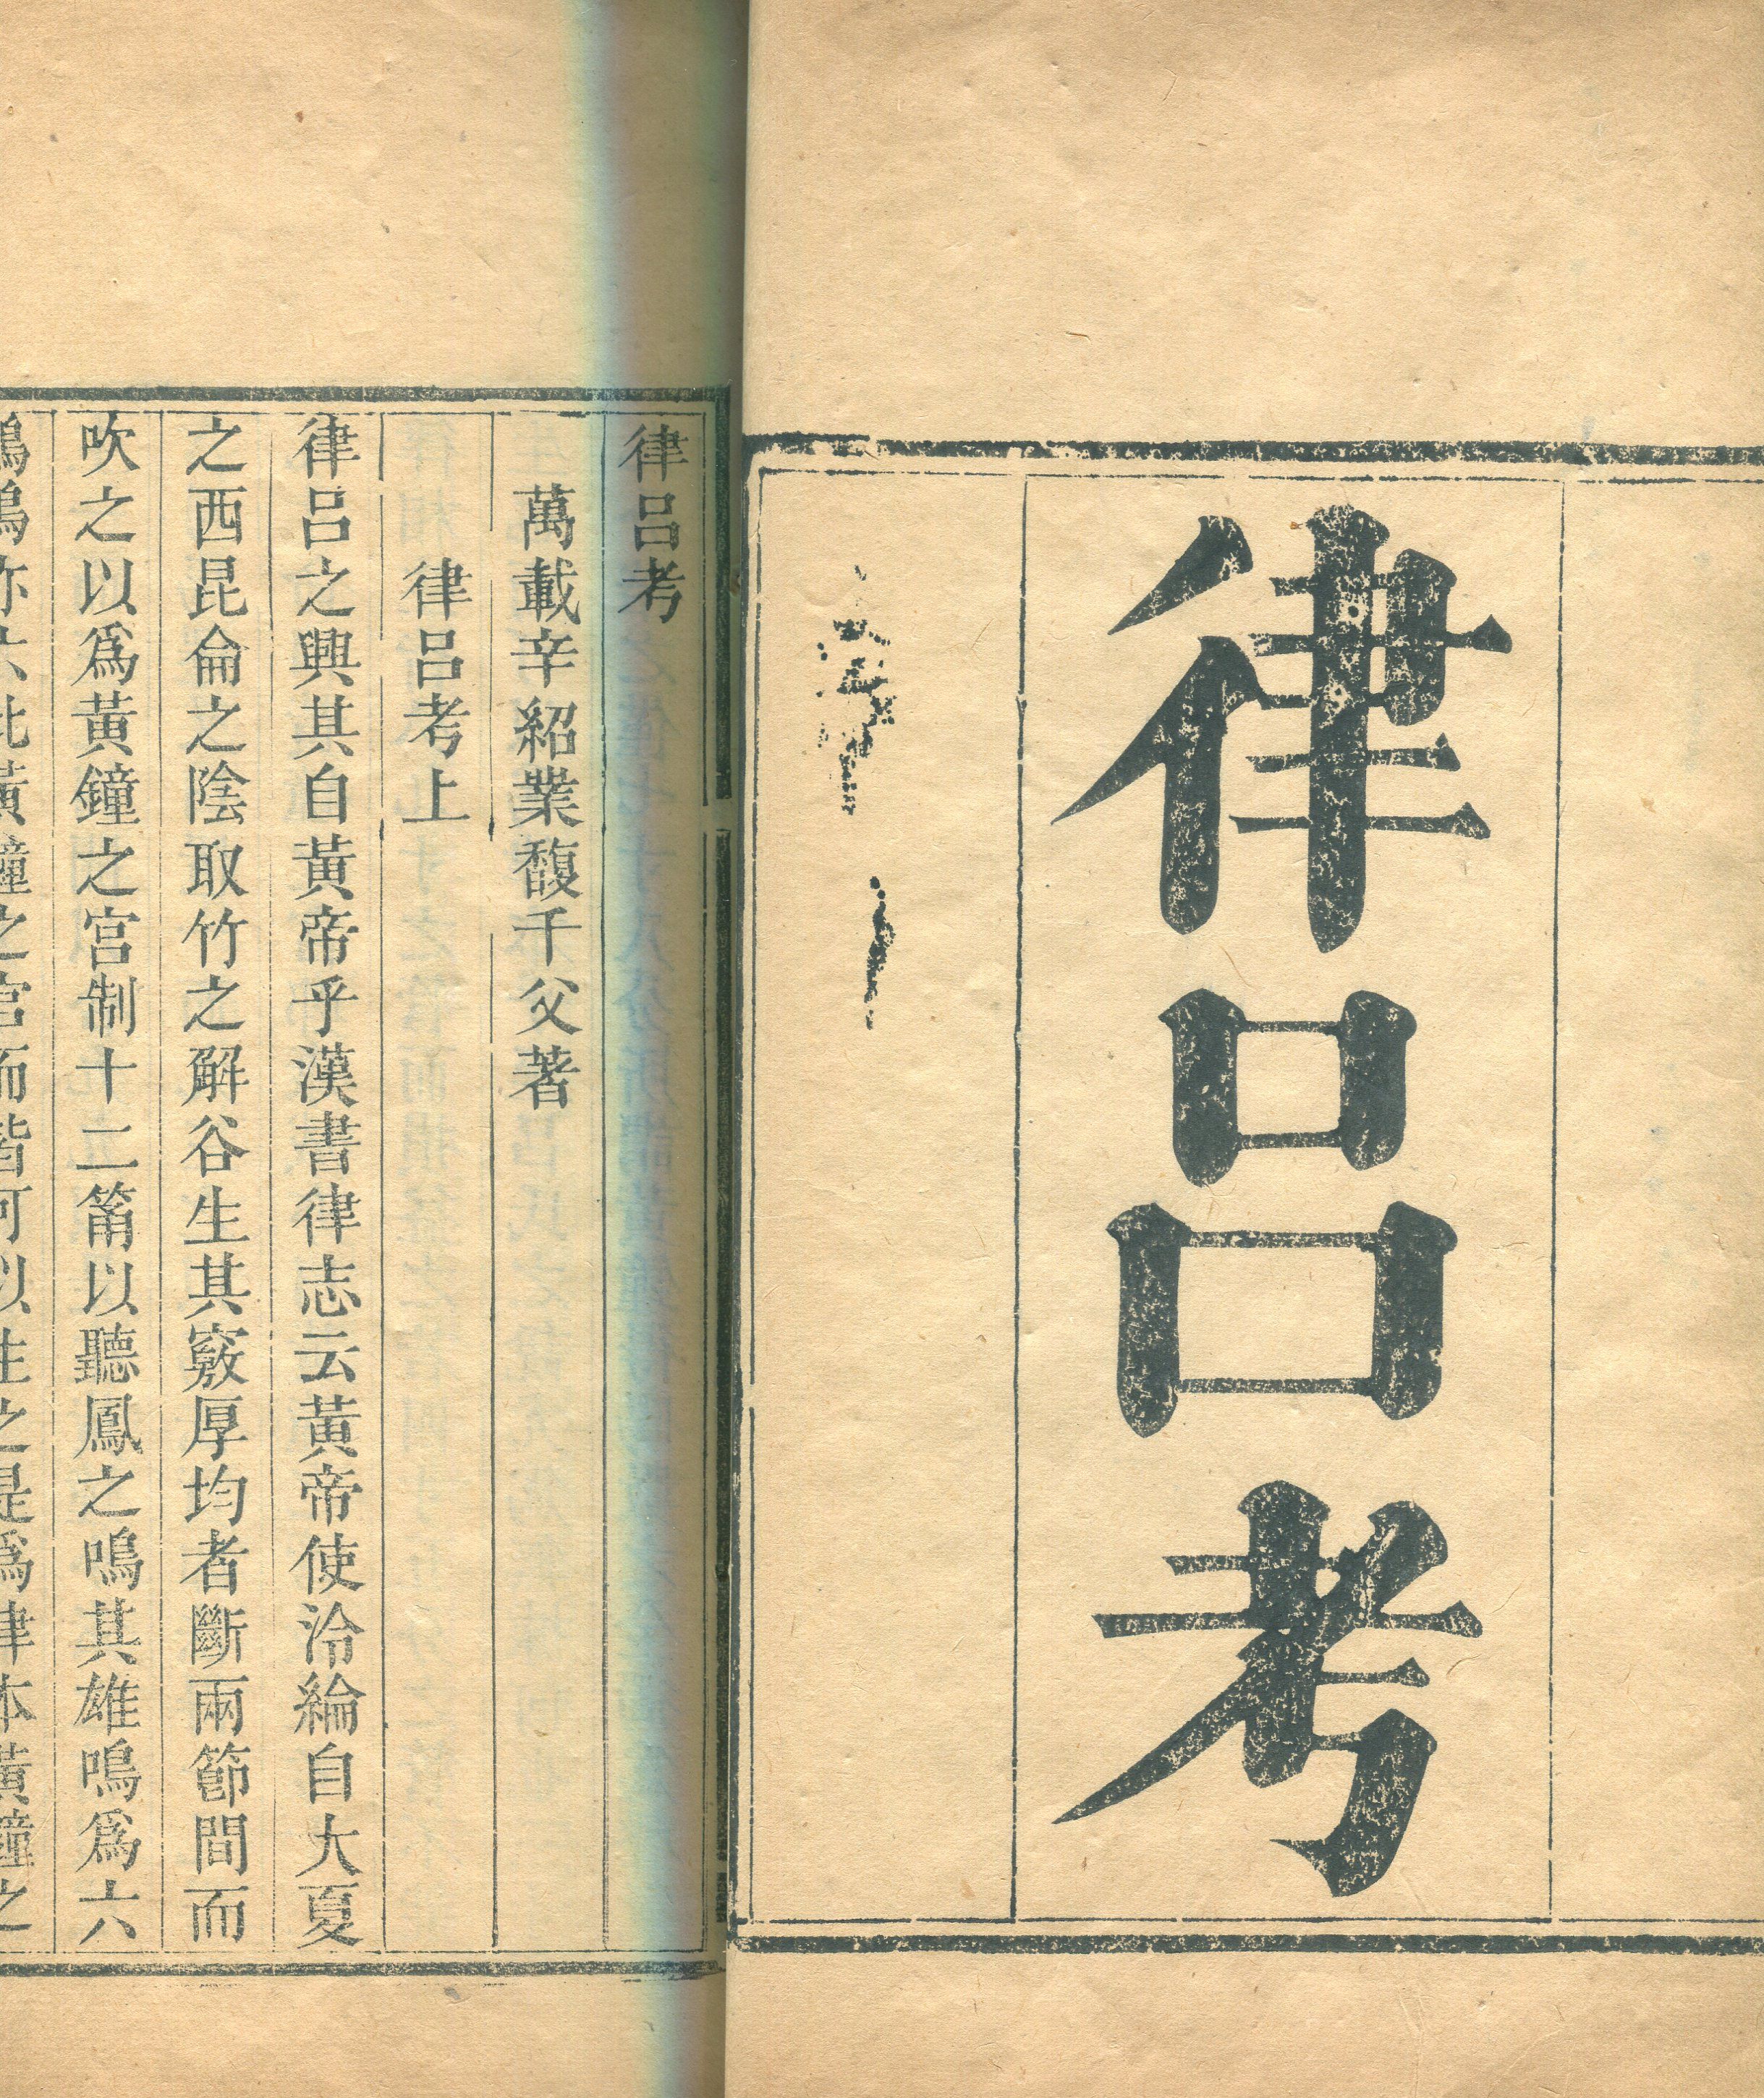 律呂考
律呂考
萬載辛紹業馥千父著
律呂考上
律呂之興其自黃帝乎漢書律志云黃帝使泠綸自大夏
之西昆侖之陰取竹之解谷生其竅厚均者斷兩節間而
吹之以爲黃鐘之宮制十二筩以聽鳳之鳴其雄鳴爲六
鳴亦六比黃鐘之宮而皆可以生之是爲律本黃鐘之